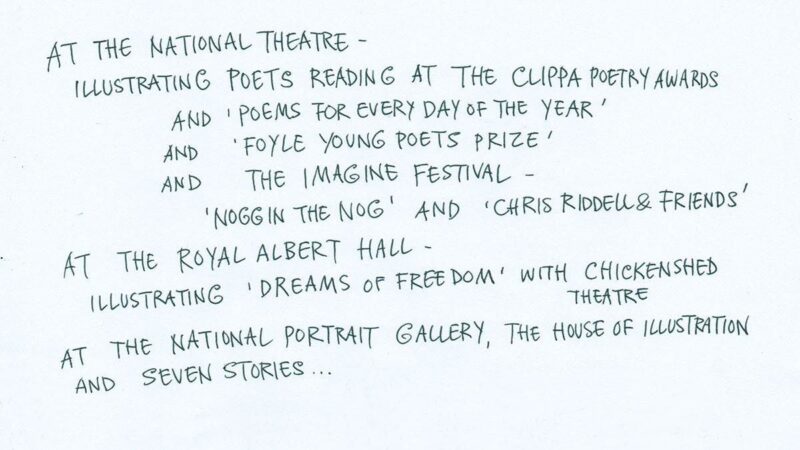 AT THE NATIONAL THEATRE -
ILLUSTRATING POETS READING AT THE CLIPPA POETRY AWARDS
AND 'POEMS FOR EVERY DAY OF THE YEAR'
AND 'FOYLE YOUNG POETS PRIZE'
AND THE IMAGINE FESTIVAL -
'NOGGIN THE NOG' AND 'CHRIS RIDDELL & FRIENDS'
AT THE ROYAL ALBERT HALL -
ILLUSTRATING 'DREAMS OF FREEDOM' WITH CHICKENSHED
THEATRE
AT THE NATIONAL PORTRAIT GALLERY, THE HOUSE OF ILLUSTRATION
AND SEVEN STORIES...